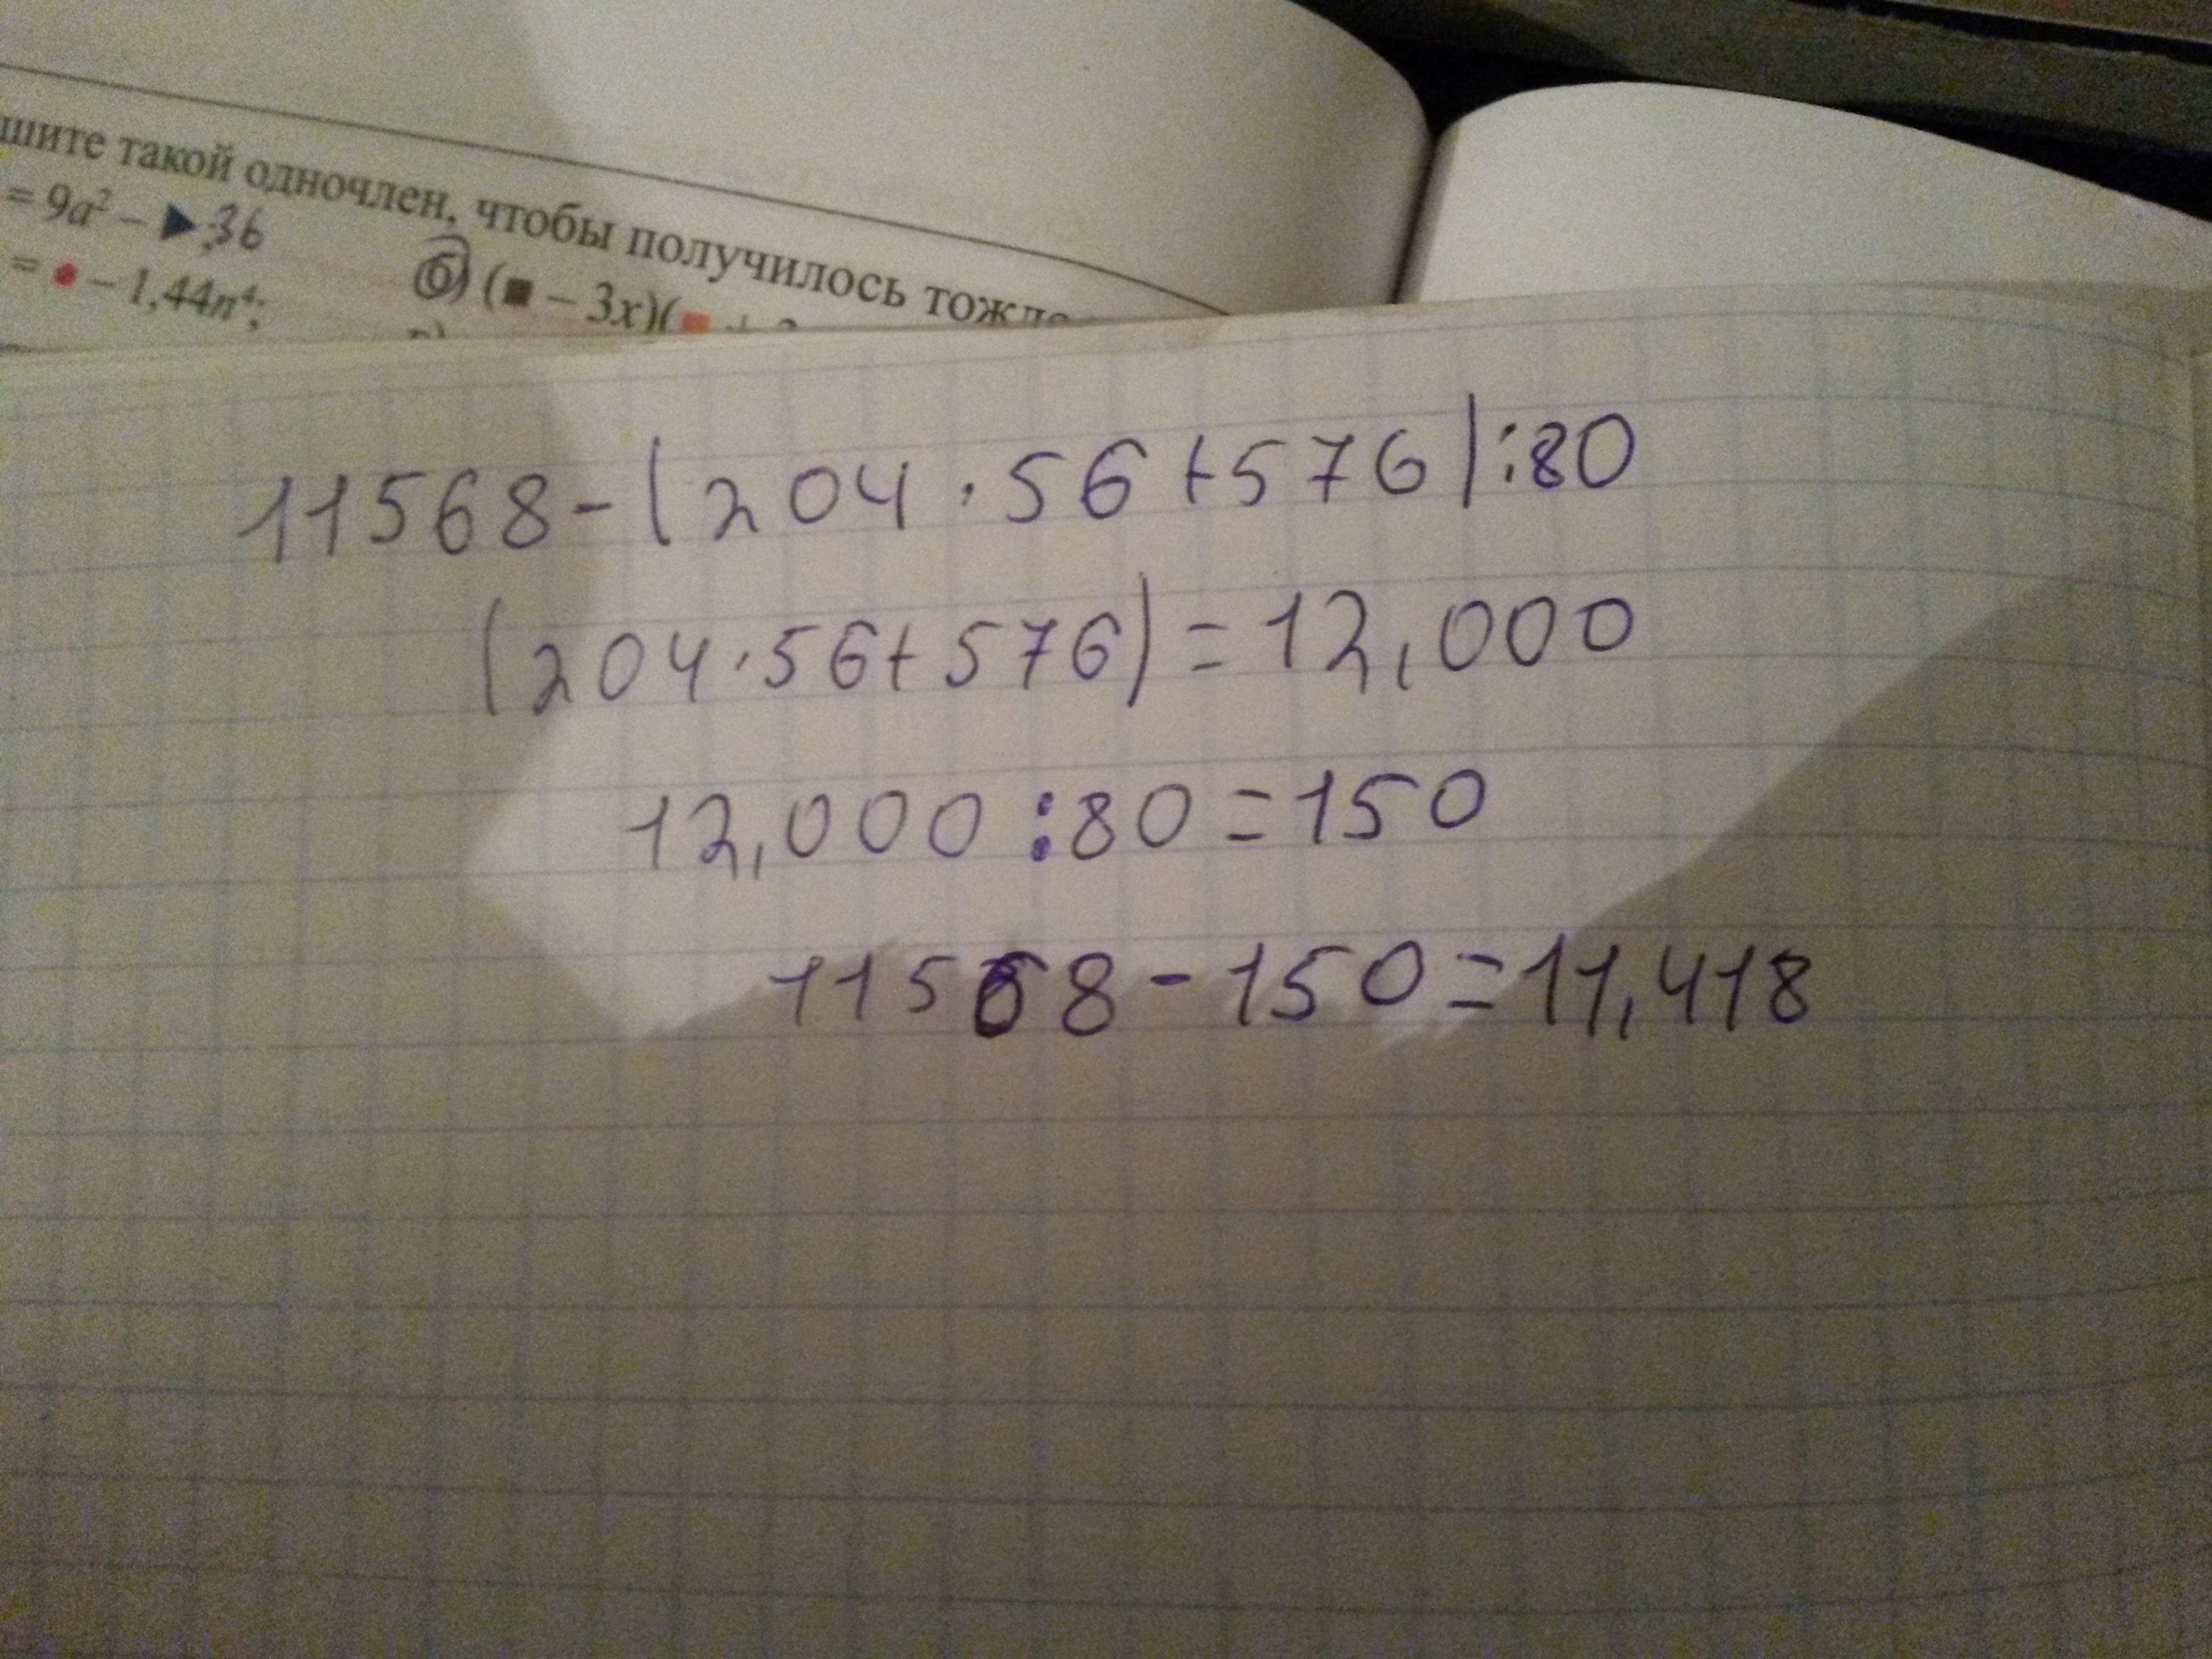 шите такой одночлен, чтобы получилось
= 9a² – ▶ 36
= • – 1,44n⁴;
б) (■ – 3x)(■ +
11568-(204·56+576):80
(204·56+576)=12,000
12,000:80=150
11568-150=11,418